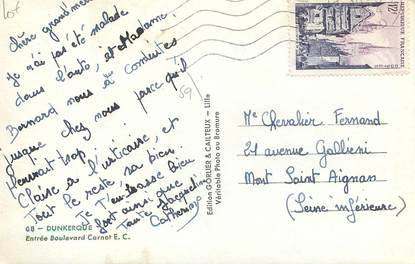 Chère grand'mère
Je n'ai pas été malade
dans l'auto, et Madame
Bernard nous a conduites
jusque chez nous parce qu'il
pleuvait trop.
Claire a l'urticaire, et
tout le reste, va bien.
Je t'embrasse bien
fort ainsi que
Tante Jacqueline
Catherine
68 - DUNKERQUE
Entrée Boulevard Carnot E. C.
Edition GORLIER & CAILTEUX - Lille
Véritable Photo au Bromure
59
12F
REPUBLIQUE FRANÇAISE
Me Chevalier Fernand
21 avenue Galliéni
Mont Saint Aignan
(Seine inférieure)